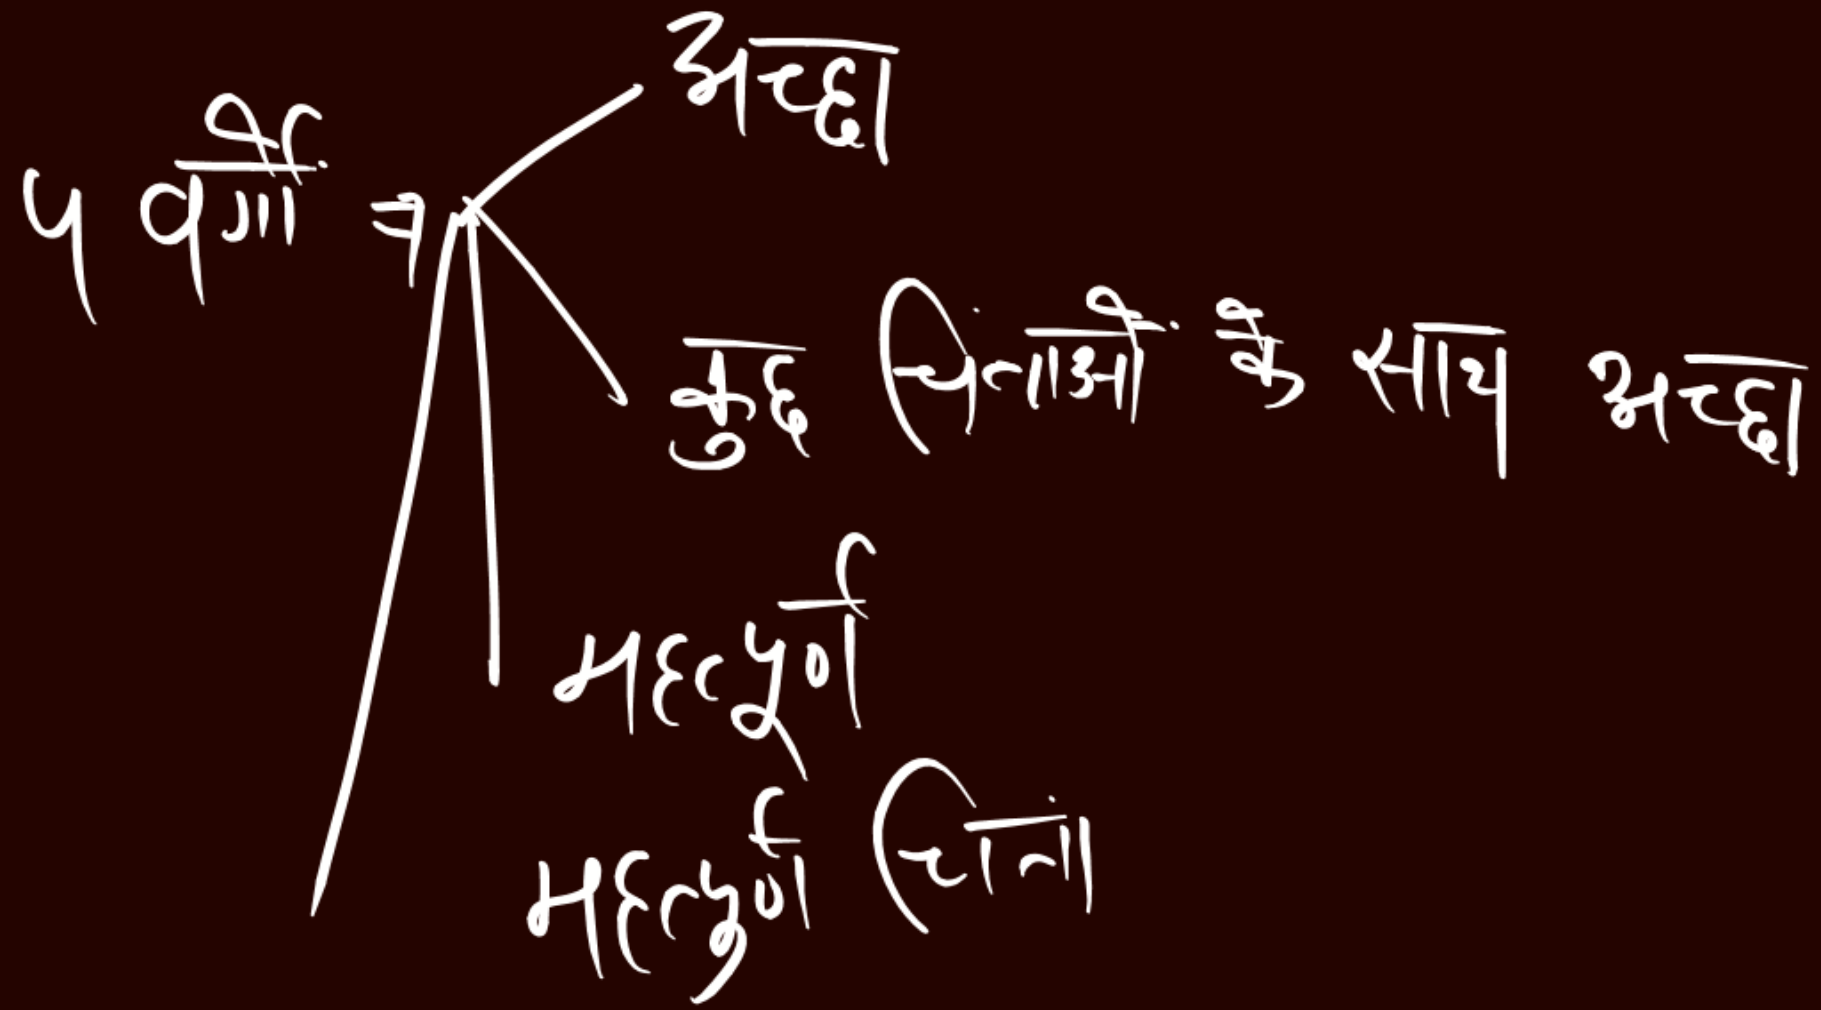 ५ वर्गों
अच्छा
कुछ चिंताओं के साथ अच्छा
महत्पूर्ण
महत्पूर्ण चिंता